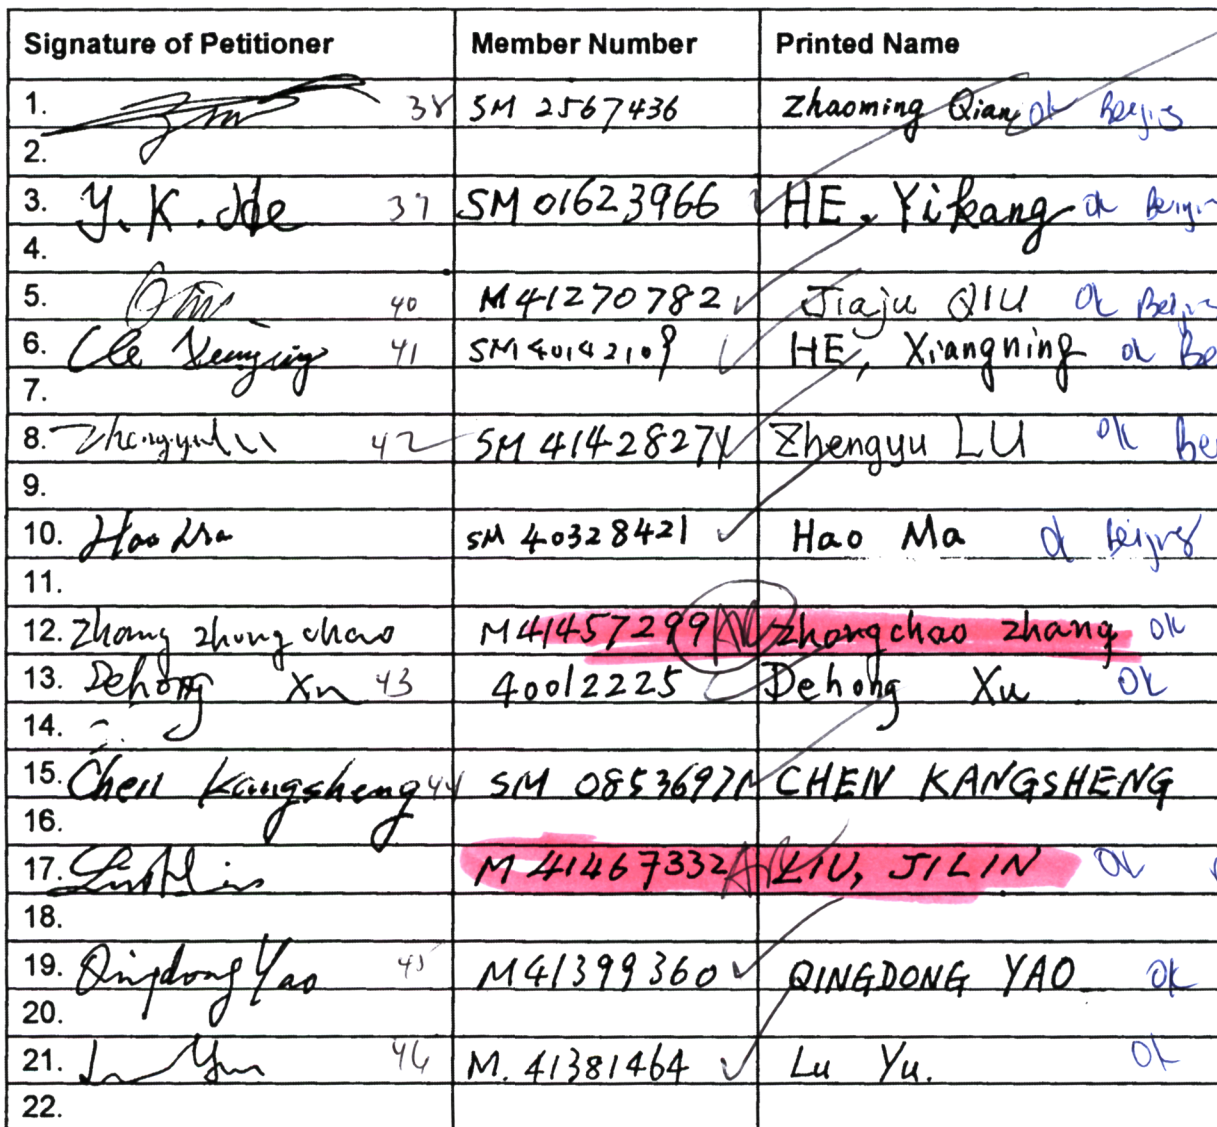 Signature of Petitioner Member Number Printed Name
1. 38 SM 2567436 Zhaoming Qian ok Beijing
2.
3. Y. K. He 39 SM 01623966 HE, Yikang ok Beijin
4.
5. 40 M 41270782 Jiaju QIU ok Beijin
6. 41 SM 40142109 HE, Xiangning ok Be
7.
8. Zhengyu Lu 42 SM 41428274 Zhengyu LU ok Be
9.
10. Hao Ma SM 40328421 Hao Ma ok Beijing
11.
12. Zhang zhongchao M 41457299 Zhongchao zhang ok
13. Dehong Xu 43 40012225 Dehong Xu OK
14.
15. Chen Kangsheng 44 SM 08536971 CHEN KANGSHENG
16.
17. M 41467332 LIU, JILIN OK
18.
19. Qingdong Yao 45 M41399360 QINGDONG YAO ok
20.
21. Lu Yu 46 M. 41381464 Lu Yu. ok
22.